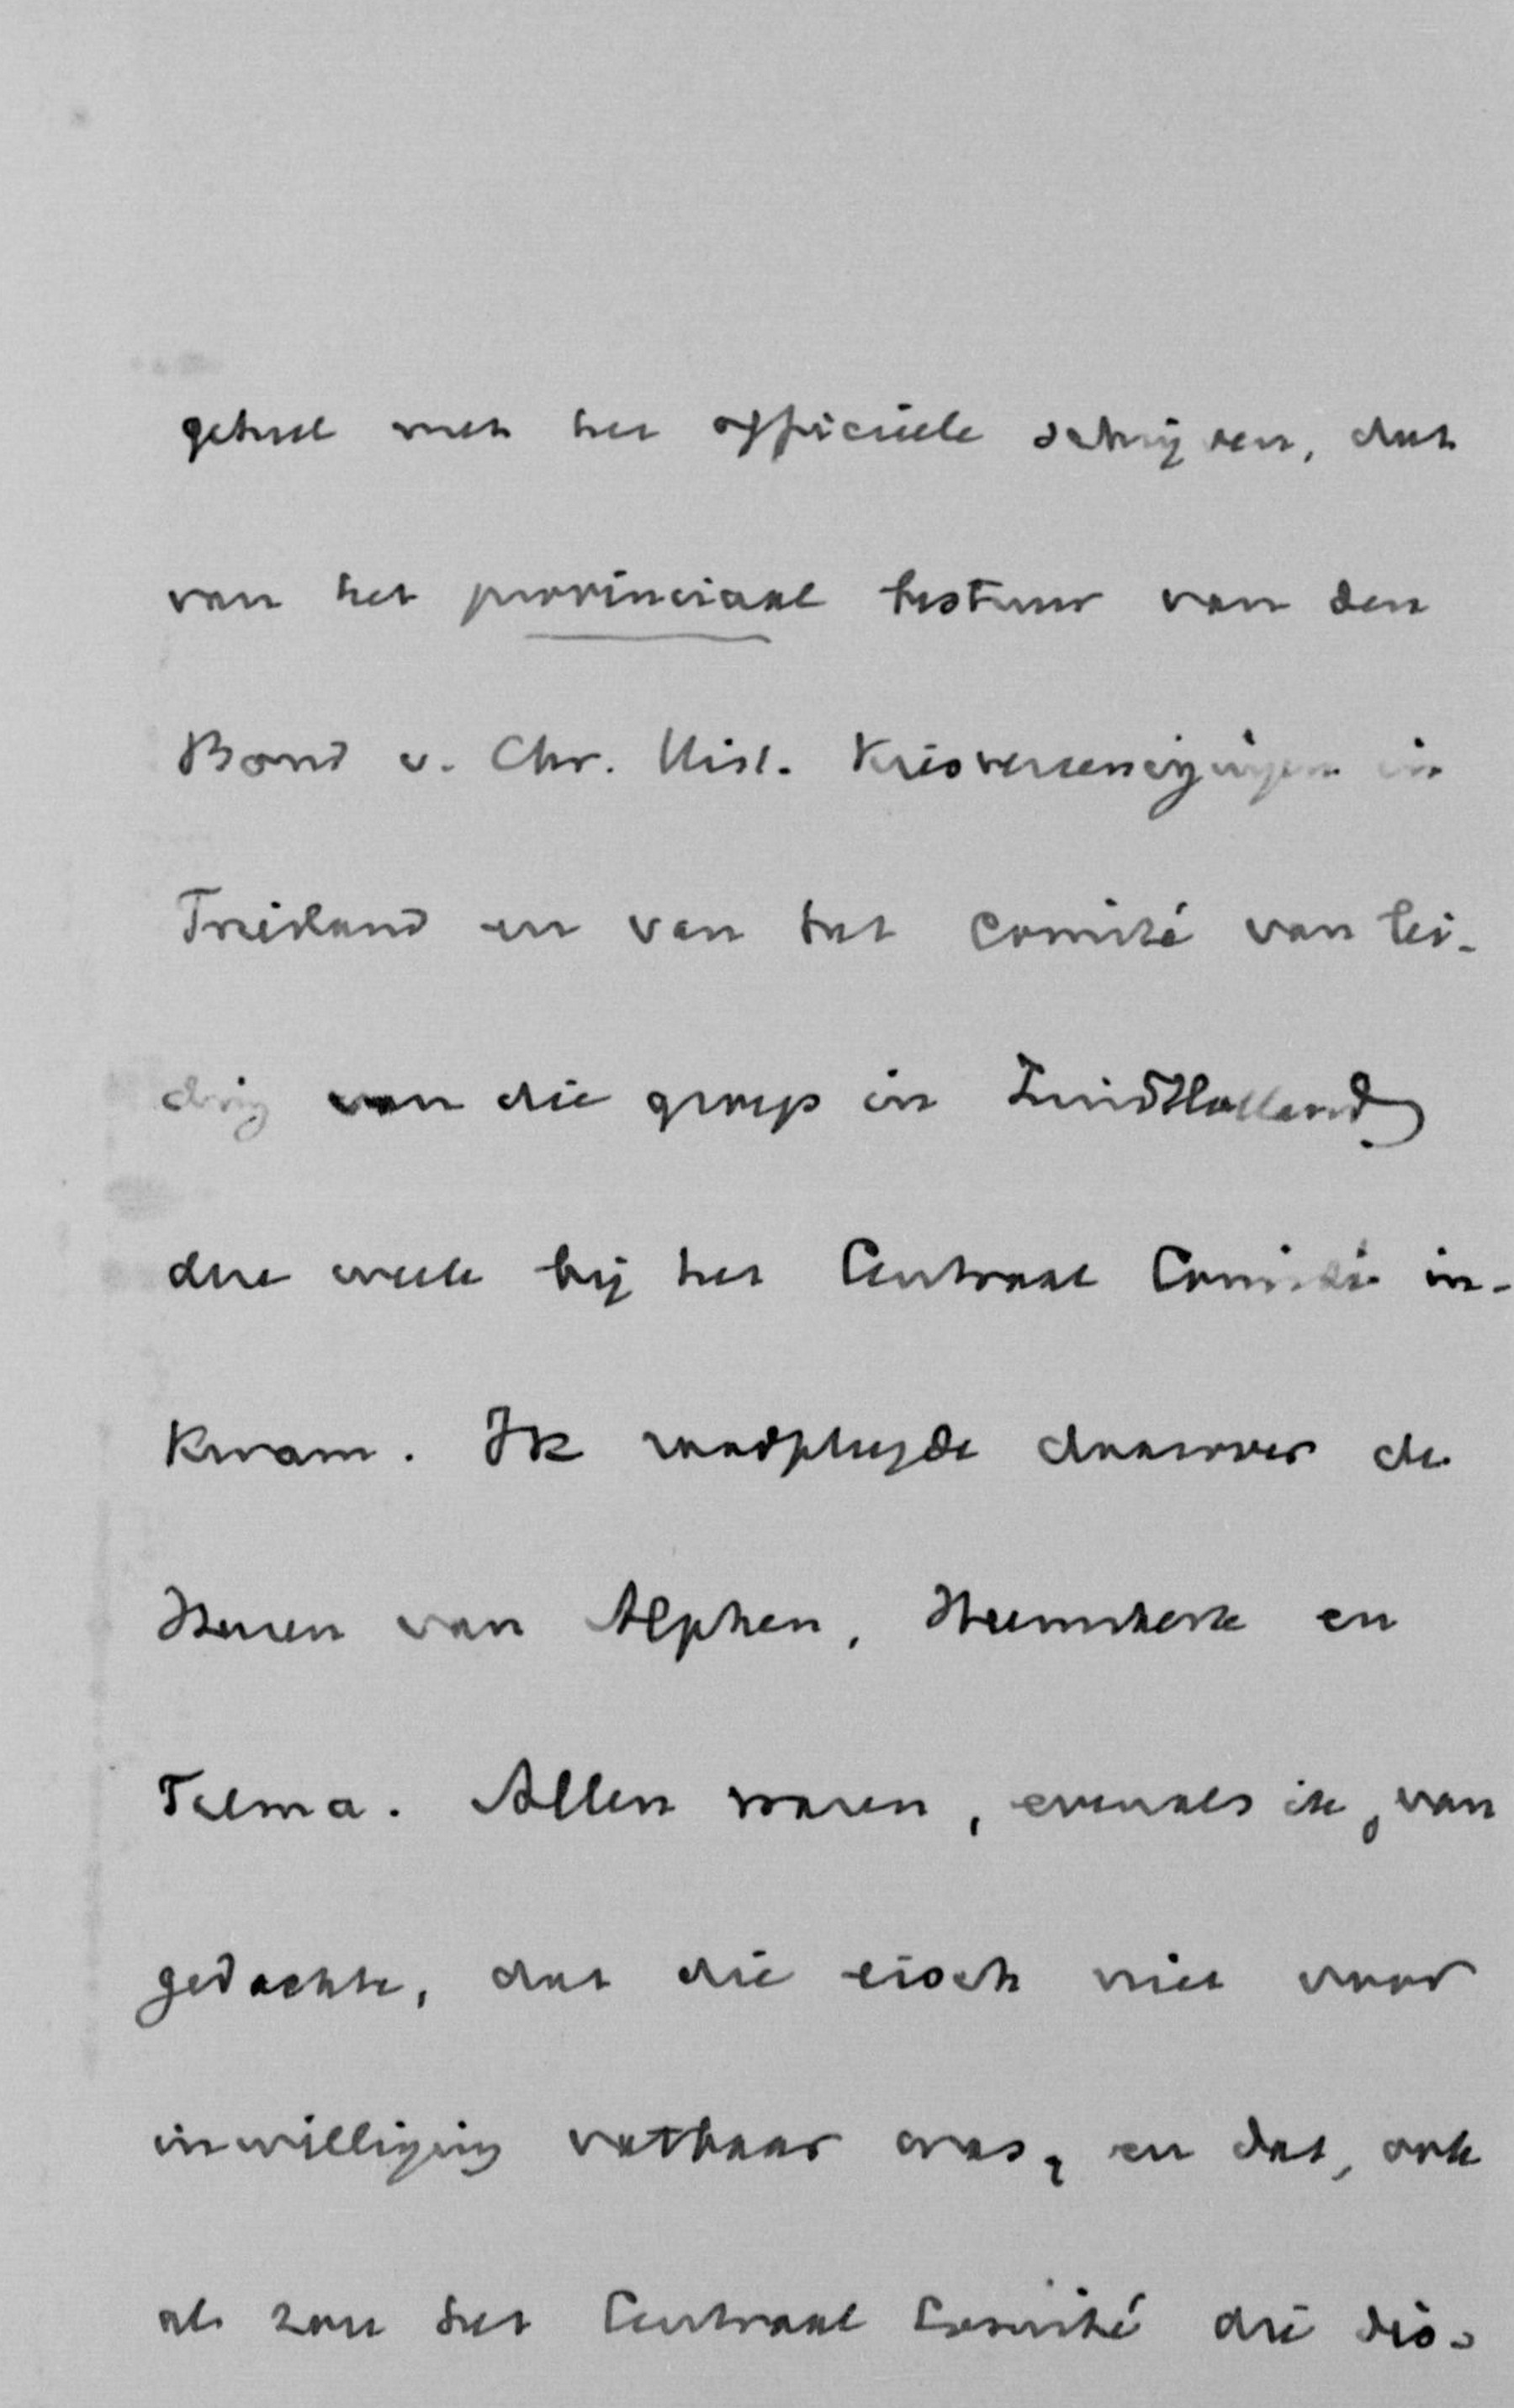 geheel met het officiëele schrijven, dat
van het provinciaal bestuur van den
Bond v. Chr. Hist. Kiesvereenigingen in
Friesland en van het comité van lei-
ding van die groep in Zuid Holland
dezer week bij het Centraal Comité in-
kwam. Ik raadpleegde daarover de
Heeren van Alphen, Heemskerk en
Talma. Allen waren, evenals ik, van
gedachte, dat die eisch niet voor
inwilliging vatbaar was, en dat, ook
al zou het Centraal Comité drie dis-